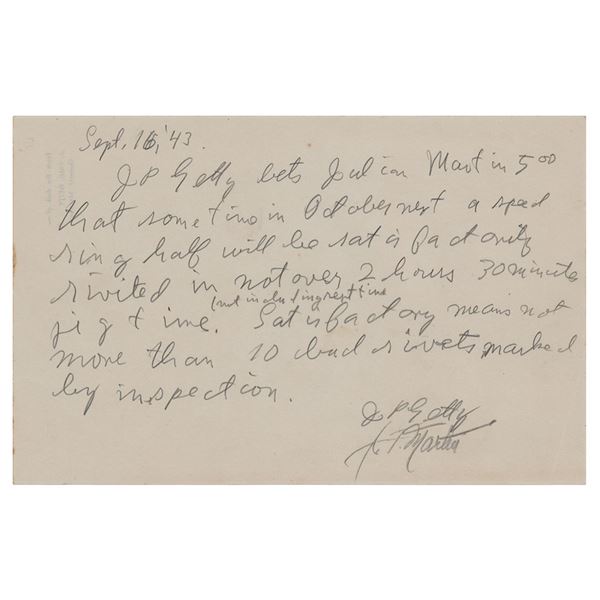 Sept. 16, '43.
J P Getty bets Julian Martin 5 00
that sometime in October next a speed
ring half will be satisfactorily
rivited in not over 2 hours 30 minute
(not including rest time
jig time. Satisfactory means not
more than 10 bad rivets marked
by inspection.
J P Getty
J. T. Martin